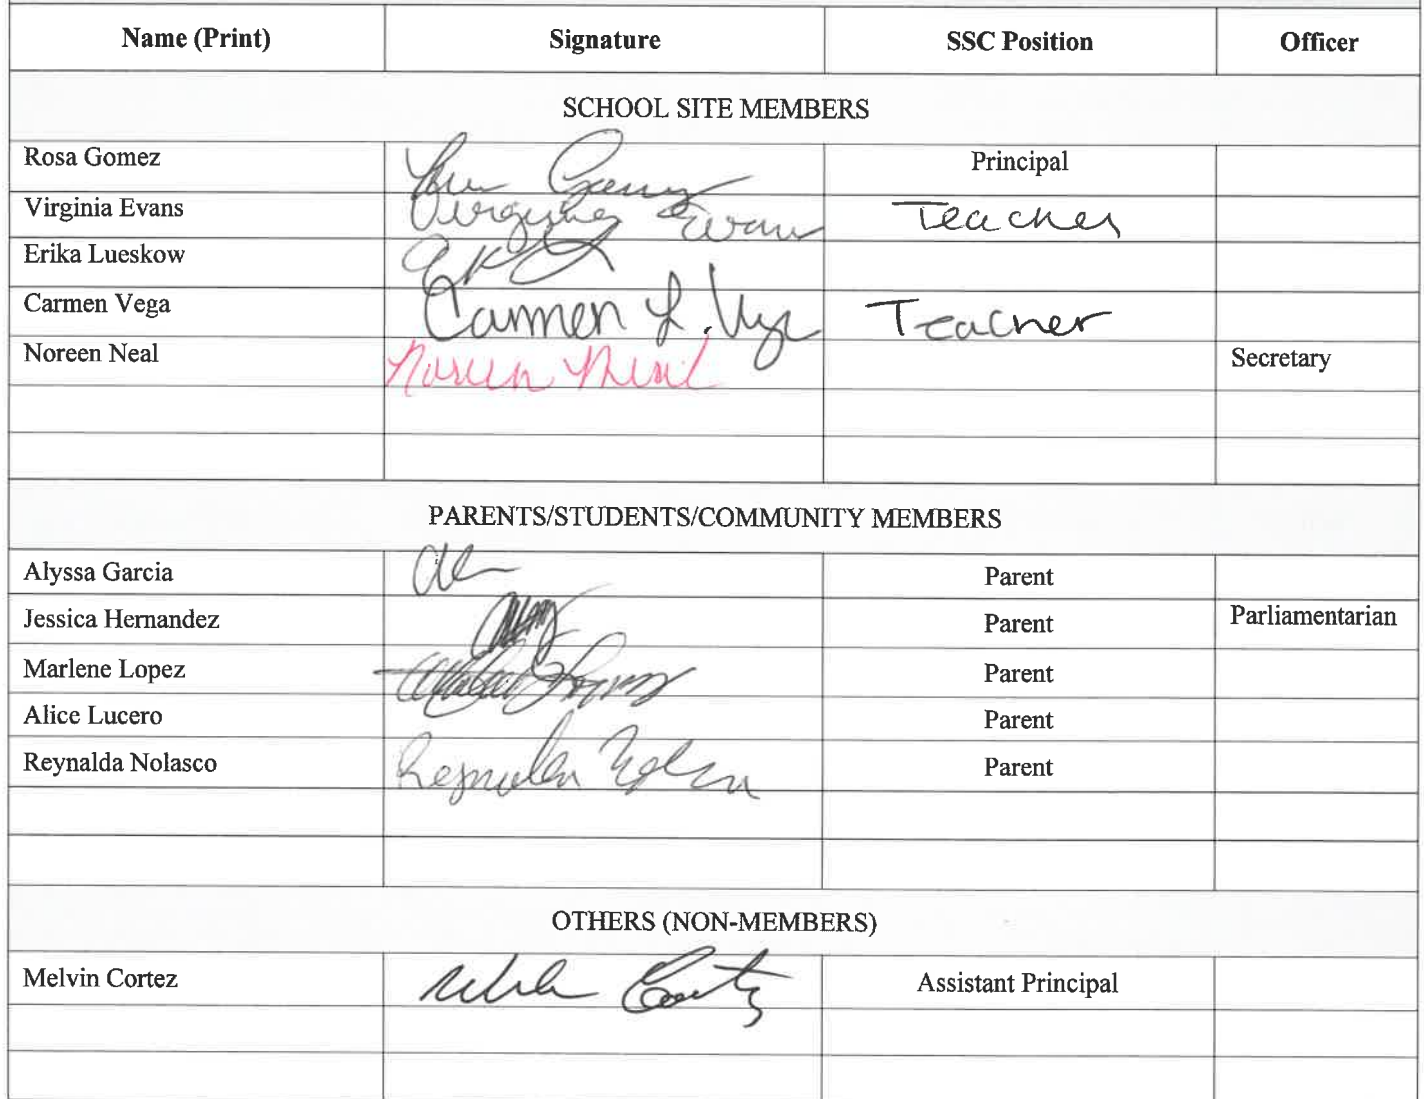 Name (Print) Signature SSC Position Officer
SCHOOL SITE MEMBERS
Rosa Gomez Principal
Virginia Evans Virginia Evans Teacher
Erika Lueskow
Carmen Vega Carmen L. Vega Teacher
Noreen Neal Noreen Neal Secretary
PARENTS/STUDENTS/COMMUNITY MEMBERS
Alyssa Garcia Parent
Jessica Hernandez Parent Parliamentarian
Marlene Lopez Parent
Alice Lucero Parent
Reynalda Nolasco Parent
OTHERS (NON-MEMBERS)
Melvin Cortez Assistant Principal